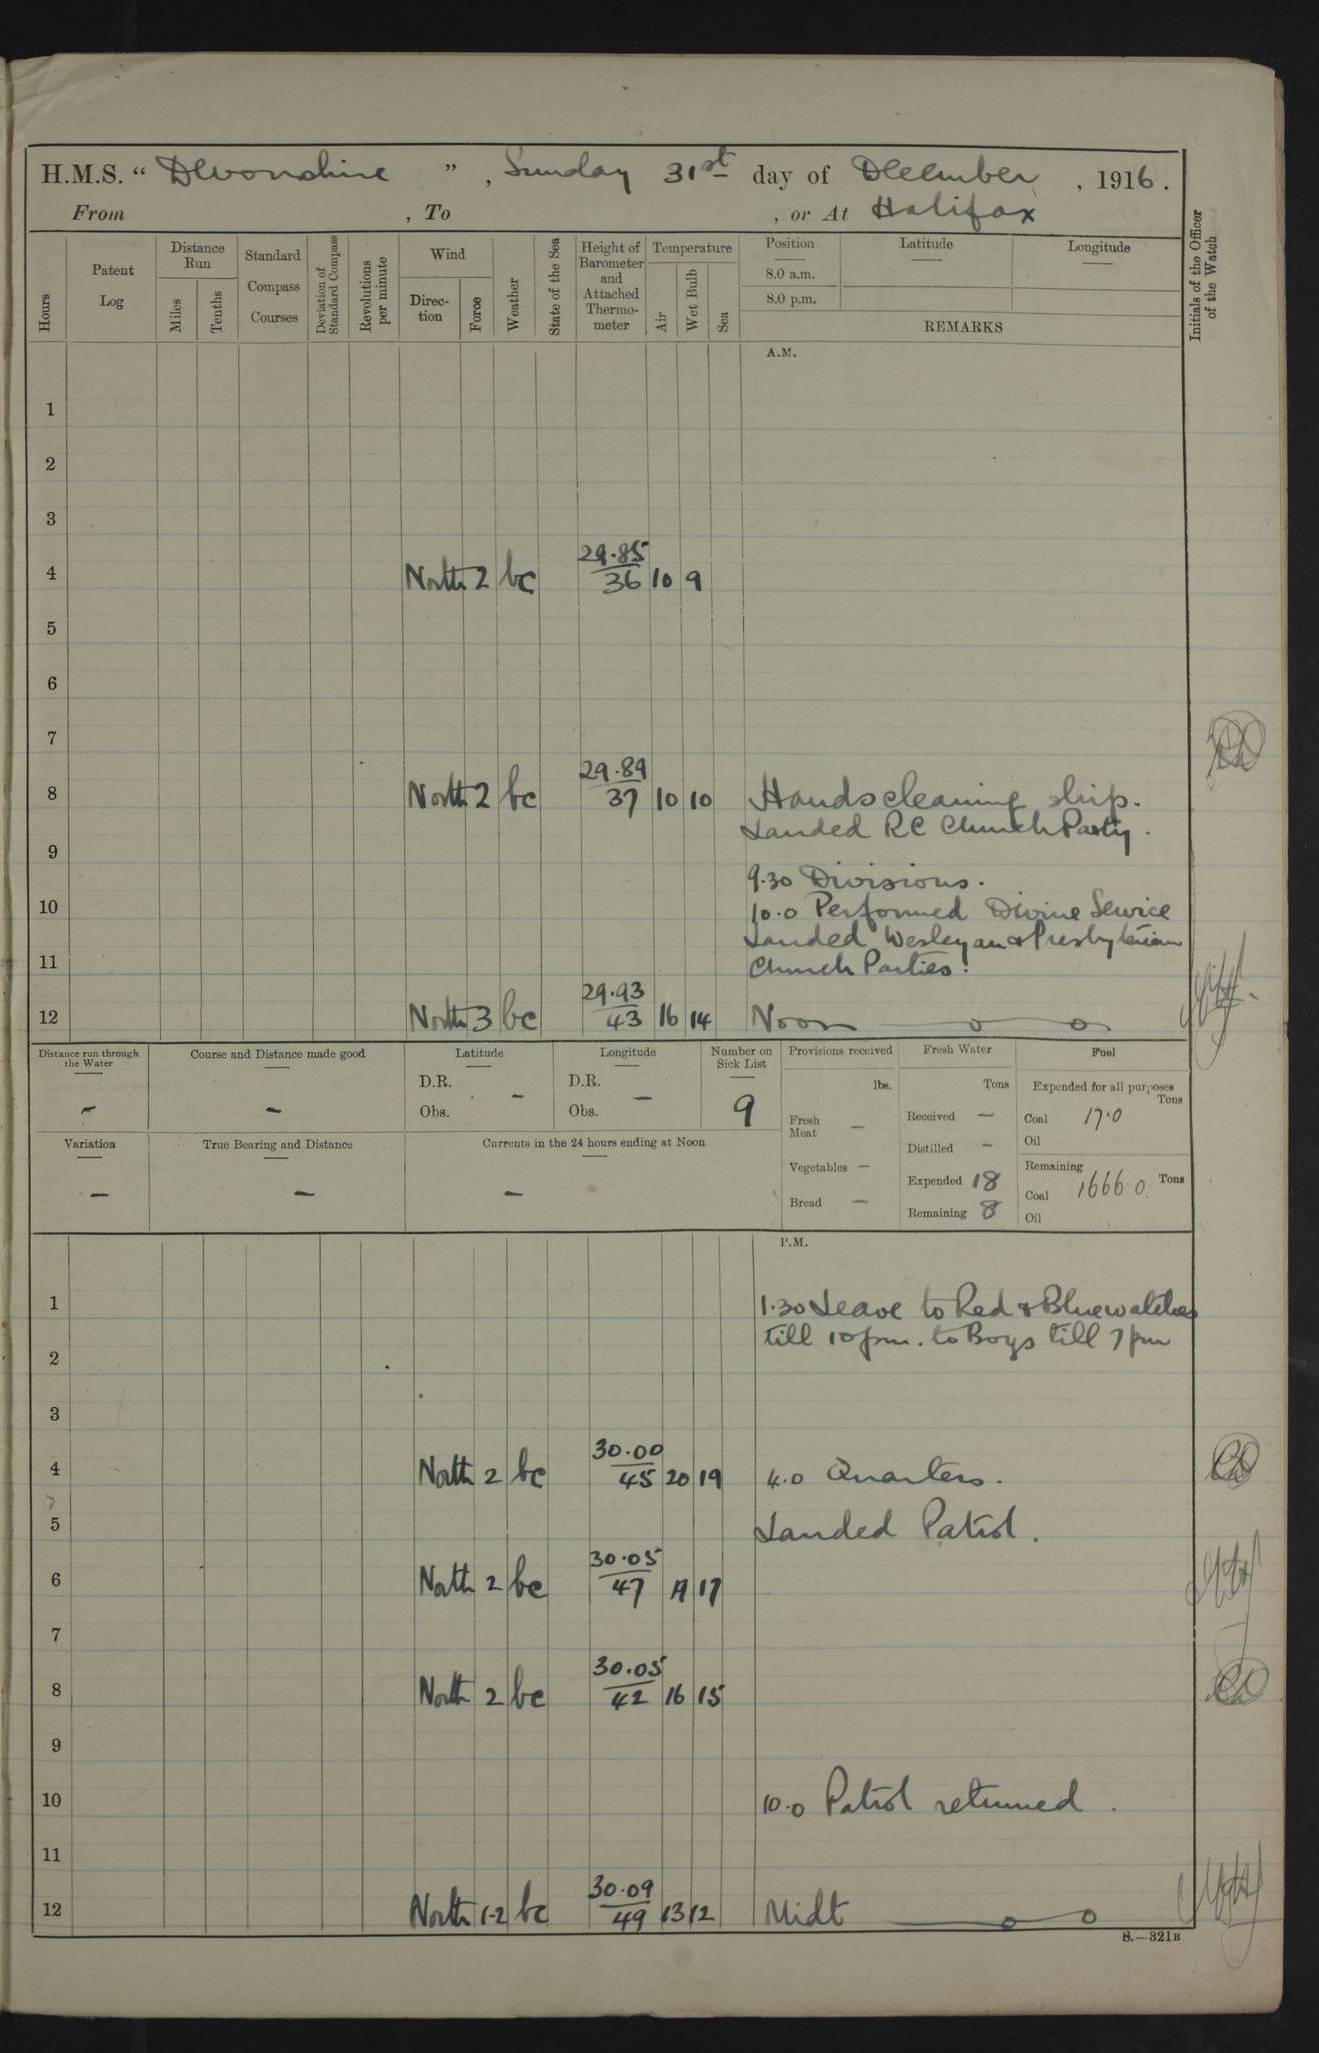 H.M.S. “ Devonshire ” , Sunday 31st day of December , 1916.
From , To , or At Halifax
Hours
Patent Log
Distance Run
Miles
Tenths
Standard Compass Courses
Deviation of Standard Compass
Revolutions per minute
Wind
Direc- tion
Force
Weather
State of the Sea
Height of Barometer and Attached Thermo- meter
Temperature
Air
Wet Bulb
Sea
Position
8.0 a.m.
8.0 p.m.
Latitude
Longitude
REMARKS
Initials of the Officer of the Watch
A.M.
1
2
3
29.85
4 North 2 bc 36 10 9
5
6
7
29.89
8 North 2 bc 37 10 10 Hands cleaning ship.
Landed RC Church Party.
9
9.30 Divisions.
10 10.0 Performed Divine Service
Landed Wesleyan & Presbyterian
11 Church Parties.
29.93
12 North 3 bc 43 16 14 Noon
Distance run through the Water
-
Course and Distance made good
-
Latitude
D.R.
Obs. -
Longitude
D.R.
Obs. -
Number on Sick List
9
Provisions received
lbs.
Fresh Meat —
Vegetables —
Bread —
Fresh Water
Tons
Received —
Distilled -
Expended 18
Remaining 8
Fuel
Expended for all purposes
Tons
Coal 17.0
Oil
Remaining
Tons
Coal 1666.0
Oil
Variation
-
True Bearing and Distance
-
Currents in the 24 hours ending at Noon
-
P.M.
1 1.30 Leave to Red & Blue watches
till 10pm. to Boys till 7pm
2
3
30.00
4 North 2 bc 45 20 19 4.0 Quarters.
5 Landed Patrol.
30.05
6 North 2 bc 47 17
7
30.05
8 North 2 bc 42 16 15
9
10 10.0 Patrol returned.
11
30.09
12 North 1-2 bc 49 13 12 Midt
S.—321B